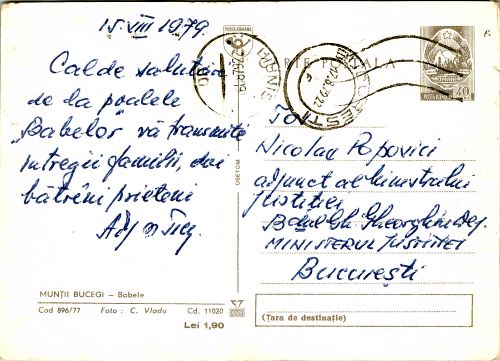 15 VIII 1979.
Calde salutări
de la poalele
"Babelor" vă transmite
întregii familii, doi
bătrîni prieteni
CARTE POȘTALĂ
POSTA ROMANA 40
BUCURESTI
Tov
Nicolau Popovici
adjunct al ministrului
Justiției
Bdul Gh. Gheorghiu Dej
MINISTERUL JUSTIȚIEI
București
OBETCM
MUNȚII BUCEGI – Babele
Cod 896/77 Foto : C. Vladu Cd. 11020
Lei 1,90
(Țara de destinație)